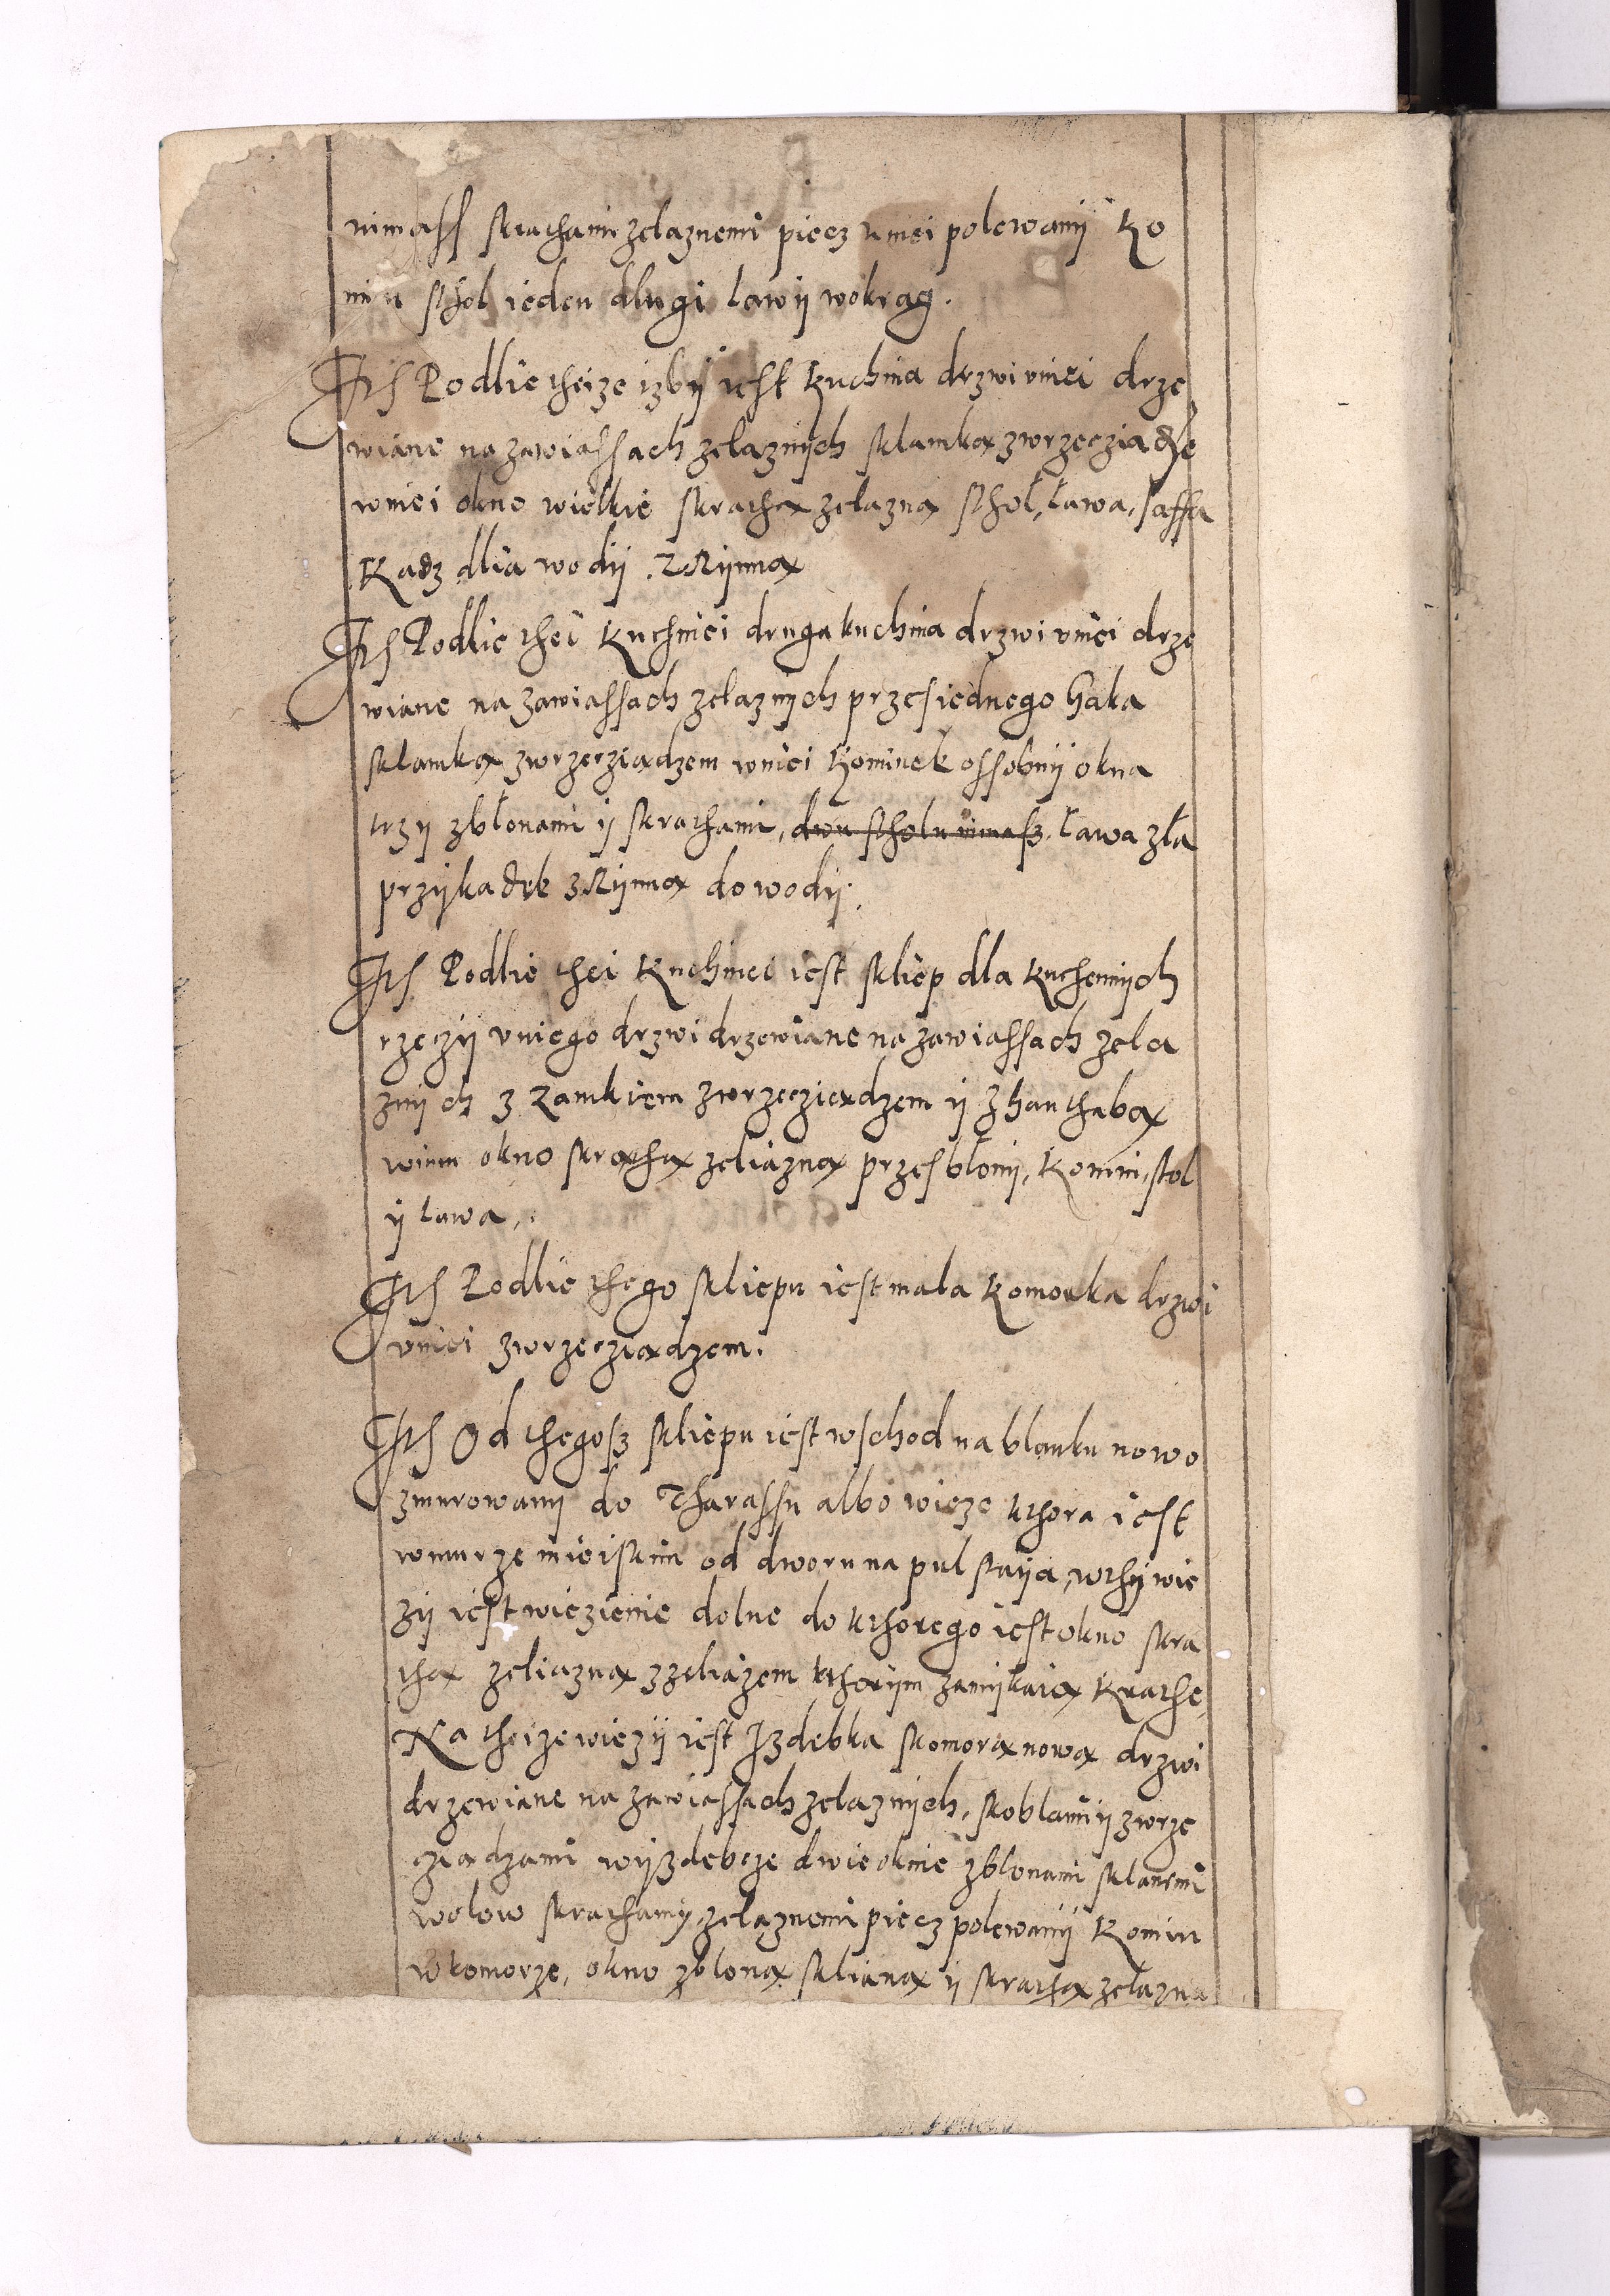 nimass skrathami zelaznemi piecz uniei polewanÿ Ko
min sthol ieden dlugi lawÿ wokrąg.
Its Podlie theize izbÿ iest Kuchnia drzwi uniei drze
wiane na zawiassach zelaznÿch sklamką zwrzecziądze
wniei okno wielkie skrathą zelazną sthol, ława, saffa
Kadz dlia wodÿ. z Rÿnną
Its Podlie thei Kuchniei druga kuchnia drzwi uniei drze
wiane na zawiassach zelaznÿch przes iednego haka
sklamką zwrzecziądzem wniei Kominek ossobnÿ okna
trzÿ zbłonami ÿ skrathami, dwu stholu nimasz. ława zła
przÿkadek z Rÿnną do wodÿ.
Its Podlie thei Kuchniei iest skliep dla kuchennÿch
rzeczÿ uniego drzwi drzewiane na zawiassach zela
znÿch z Zamkiem zwrzecziądzem ÿ z hanthabą
wnim okno skrathą zeliazną przes blonÿ, Komin, stol
ÿ lawa,.
Its Podlie thego skliepu iest mala Komorka drzwi
uniei zwrzecziądzem.
Its Od thegosz skliepu iest wschod na blanku nowo
zmurowanÿ do Tharassu albo wieze kthora iest
wmurze mieiskim od dworu na pul staÿa, wthÿ wie
zÿ iest wiezienie dolne do kthorego iest okno skra
thą zeliazną zzeliazem kthorÿm zamÿkaią Krathe,
Na theize wiezÿ iest Izdebka skomorą nową drzwi
drzewiane na zawiassach zelaznÿch, skoblami ÿ zwrze
cziądzami wÿzdebcze dwie oknie zblonami sklanemi
wolow skrathamy, zelaznemi piecz polewanÿ Komin
wkomorze, okno zbloną sklianą ÿ skrathą zelazną